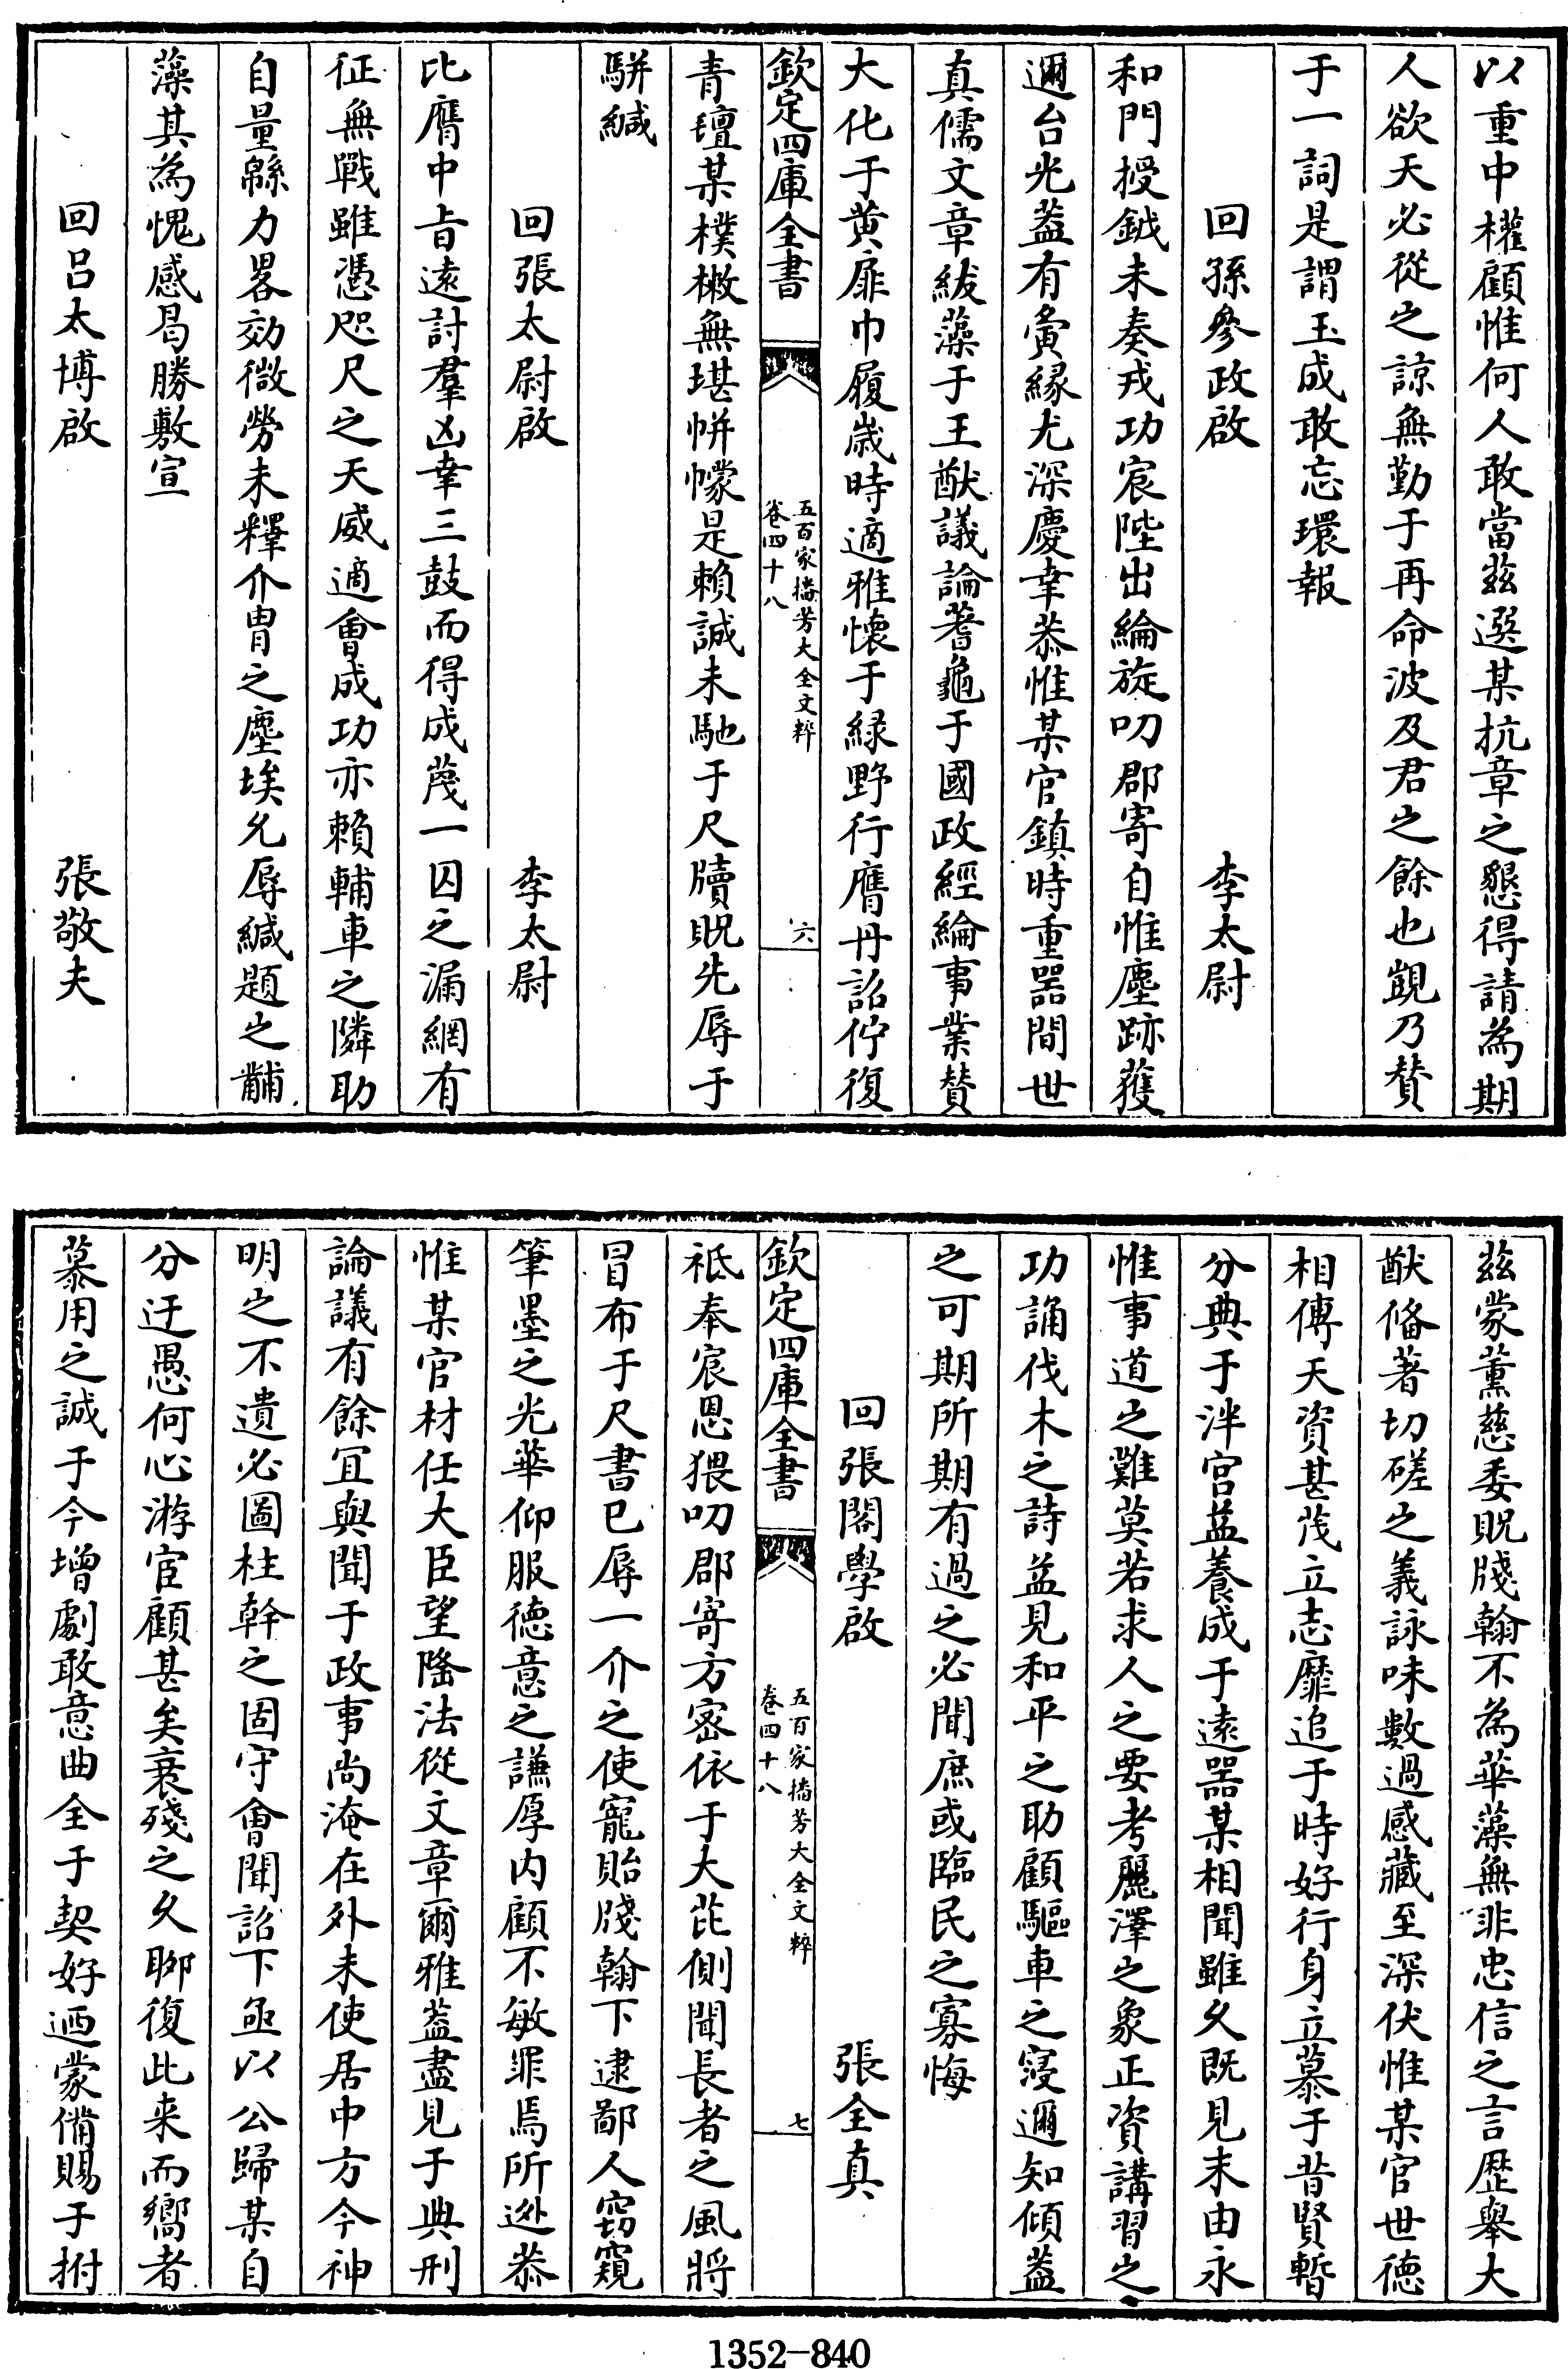 以重中權顧惟何人敢當茲選某抗章之懇得請為期
人欲天必從之諒無勤于再命波及君之餘也覬乃賛
于一詞是謂玉成敢忘環報
回孫參政啟 李太尉
和門授鉞未奏戎功宸陛出綸旋叨郡寄自惟塵跡獲
邇台光葢有夤縁尤深慶幸恭惟某官鎮時重器間世
真儒文章紱藻于王猷議論蓍龜于國政經綸事業賛
大化于黄扉巾履歲時適雅懷于緑野行膺丹詔佇復
欽定四庫全書 五百家播芳大全文粹 卷四十八 六
青氊某樸樕無堪帡幪是賴誠未馳于尺牘貺先辱于
駢緘
回張太尉啟 李太尉
比膺中旨遠討羣凶幸三鼓而得成蔑一囚之漏網有
征無戰雖憑咫尺之天威適會成功亦賴輔車之隣助
自量緜力畧効微勞未釋介胄之塵埃乆辱緘題之黼
藻其為愧感曷勝敷宣
回吕太博啟 張敬夫
茲蒙薰慈委貺牋翰不為華藻無非忠信之言歴舉大
猷俻著切磋之義詠味數過感藏至深伏惟某官世徳
相傳天資甚茂立志靡追于時好行身立慕于昔賢暫
分典于泮宫益養成于逺器某相聞雖乆既見末由永
惟事道之難莫若求人之要考麗澤之象正資講習之
功誦伐木之詩益見和平之助顧驅車之寖邇知傾葢
之可期所期有過之必聞庶或臨民之寡悔
回張閣學啟 張全真
欽定四庫全書 五百家播芳大全文粹 卷四十八 七
祗奉宸恩猥叨郡寄方宻依于大芘側聞長者之風將
冒布于尺書已辱一介之使寵貽牋翰下逮鄙人竊窺
筆墨之光華仰服徳意之謙厚内顧不敏罪焉所逃恭
惟某官材任大臣望隆法從文章爾雅葢盡見于典刑
論議有餘冝與聞于政事尚淹在外未使居中方今神
明之不遺必圖柱幹之固守會聞詔下亟以公歸某自
分迂愚何心游宦顧甚矣衰殘之乆聊復此来而嚮者
慕用之誠于今增劇敢意曲全于契好迺蒙備賜于拊
1352-840